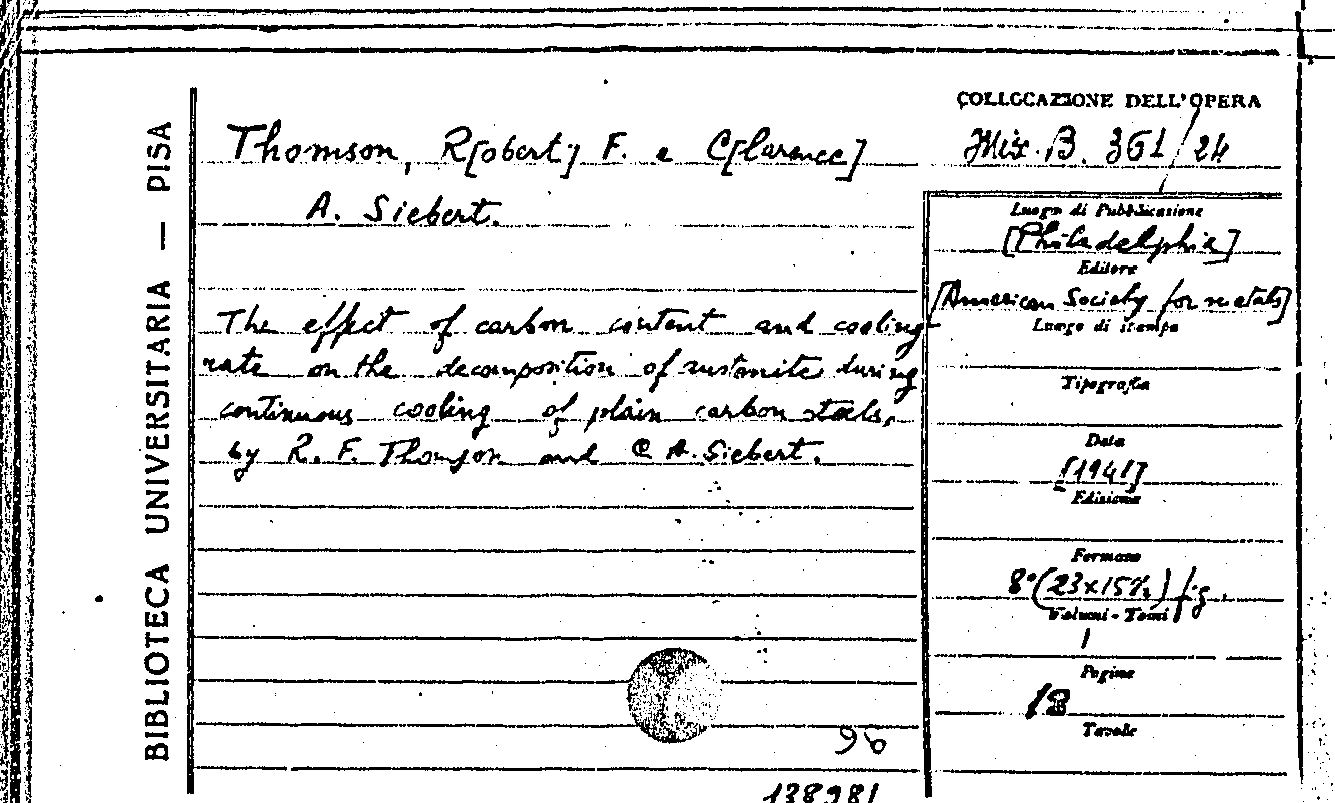 BIBLIOTECA UNIVERSITARIA — PISA
Thomson, R[obert] F. e C[larence]
A. Siebert.
The effect of carbon content and cooling
rate on the decomposition of austenite during
continuous cooling of plain carbon steels,
by R. F. Thomson and C. A. Siebert.
96
138981
COLLOCAZIONE DELL'OPERA
Mix. B. 361/24
Luogo di Pubblicazione
[Philadelphia]
Editore
[American Society for metals]
Luogo di stampa
Tipografia
Data
[1941]
Edizione
Formato
8° (23x15½) fig.
Volumi - Tomi
1
Pagine
Tavole